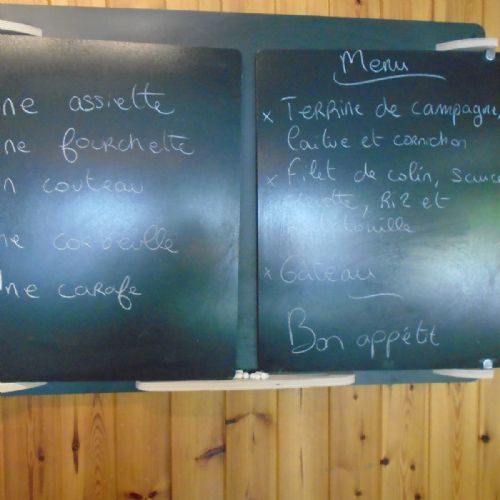 ne assiette
ne fourchette
n couteau
ne corbeille
Une carafe
Menu
x Terrine de campagne,
laitue et cornichon
x Filet de colin, sauce
Riz et
x Gâteau
Bon appétit